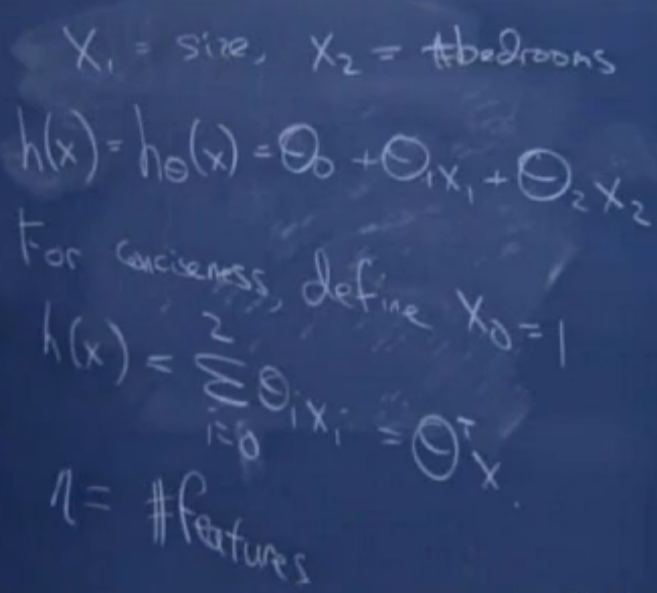 X₁ = size, X₂ = #bedrooms
h(x) = h_θ(x) = θ₀ + θ₁x₁ + θ₂x₂
For conciseness, define X₀ = 1
h(x) = ∑_{i=0}^{2} θᵢxᵢ = θᵀx.
n = #features